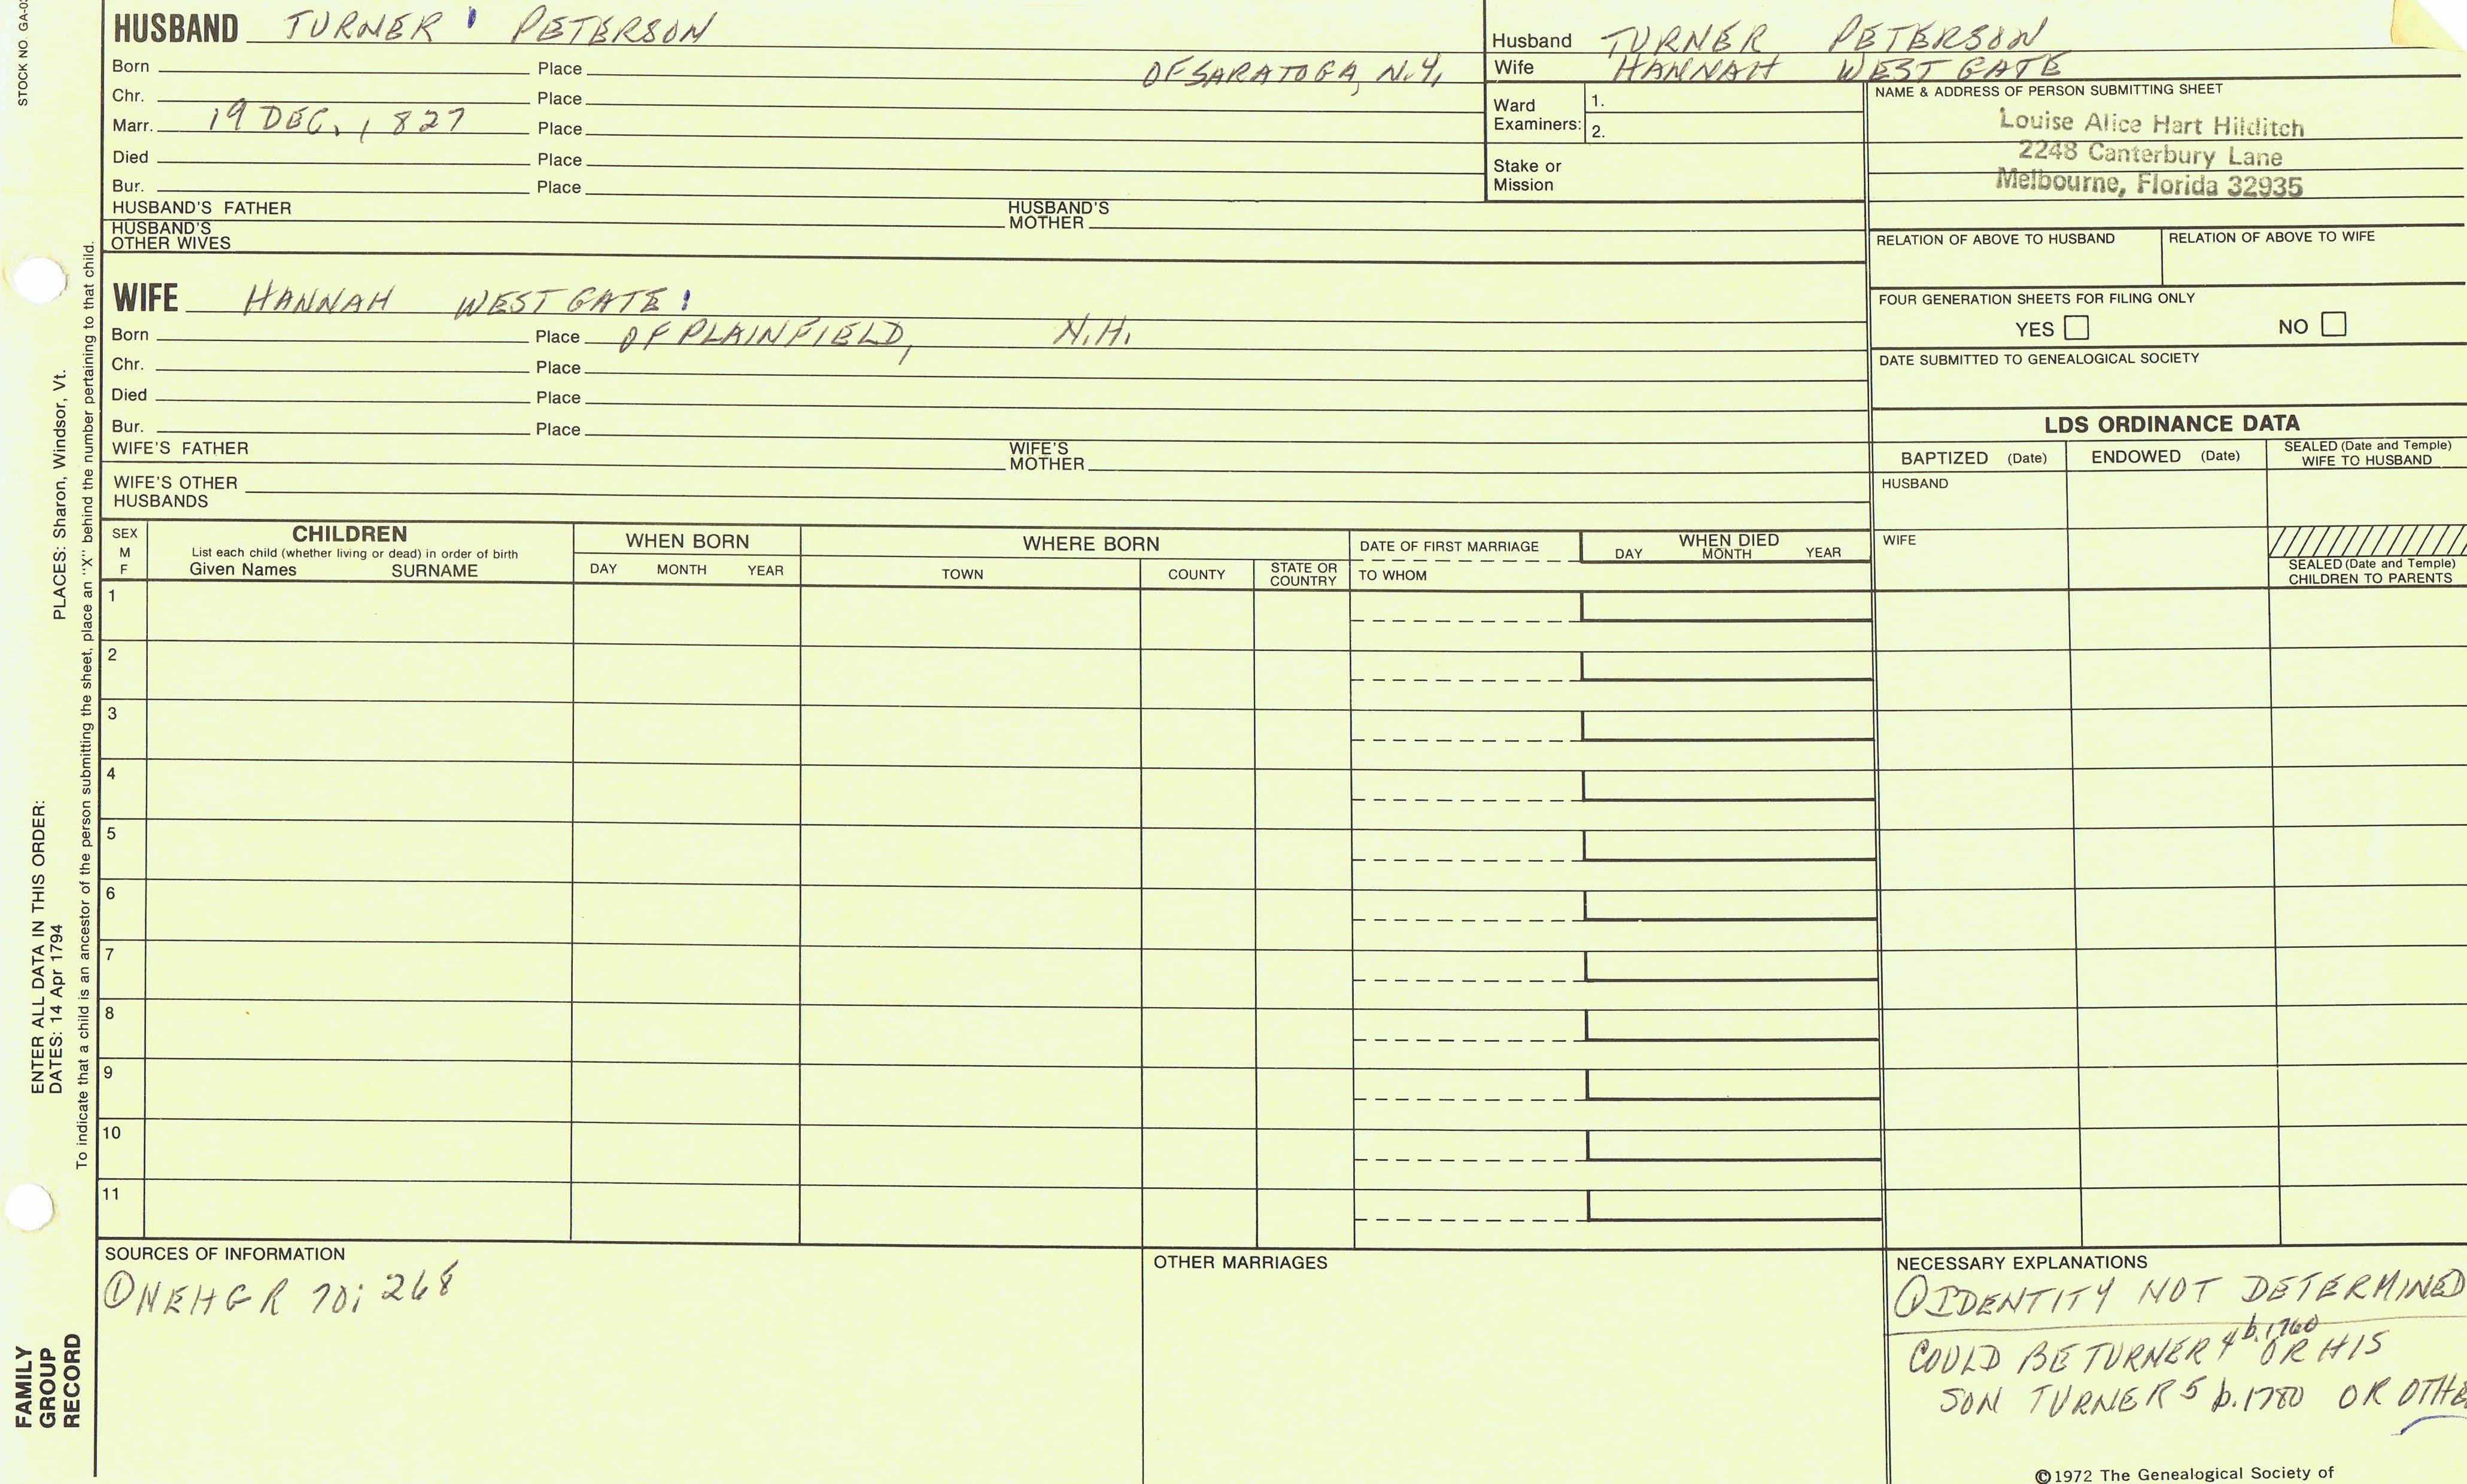 STOCK NO. GA-0
HUSBAND TURNER ¹ PETERSON
Born Place OF SARATOGA, N.Y.
Chr. Place
Marr. 19 DEC. 1827 Place
Died Place
Bur. Place
HUSBAND'S FATHER HUSBAND'S MOTHER
HUSBAND'S OTHER WIVES
Husband TURNER PETERSON
Wife HANNAH WESTGATE
Ward Examiners: 1.
2.
Stake or Mission
NAME & ADDRESS OF PERSON SUBMITTING SHEET
Louise Alice Hart Hilditch
2248 Canterbury Lane
Melbourne, Florida 32935
RELATION OF ABOVE TO HUSBAND RELATION OF ABOVE TO WIFE
FOUR GENERATION SHEETS FOR FILING ONLY
YES NO
DATE SUBMITTED TO GENEALOGICAL SOCIETY
WIFE HANNAH WESTGATE ¹
Born Place OF PLAINFIELD, N.H.
Chr. Place
Died Place
Bur. Place
WIFE'S FATHER WIFE'S MOTHER
WIFE'S OTHER HUSBANDS
LDS ORDINANCE DATA
BAPTIZED (Date) ENDOWED (Date) SEALED (Date and Temple) WIFE TO HUSBAND
HUSBAND
WIFE
SEALED (Date and Temple)
CHILDREN TO PARENTS
SEX M F
CHILDREN
List each child (whether living or dead) in order of birth
Given Names SURNAME
WHEN BORN
DAY MONTH YEAR
WHERE BORN
TOWN COUNTY STATE OR COUNTRY
DATE OF FIRST MARRIAGE
TO WHOM
WHEN DIED
DAY MONTH YEAR
1
2
3
4
5
6
7
8
9
10
11
SOURCES OF INFORMATION
① NEHGR 70; 268
OTHER MARRIAGES
NECESSARY EXPLANATIONS
① IDENTITY NOT DETERMINED
COULD BE TURNER 4 b.1760 OR HIS
SON TURNER 5 b.1780 OR OTHE
©1972 The Genealogical Society of
PLACES: Sharon, Windsor, Vt.
ENTER ALL DATA IN THIS ORDER:
DATES: 14 Apr 1794
To indicate that a child is an ancestor of the person submitting the sheet, place an "X" behind the number pertaining to that child.
FAMILY
GROUP
RECORD